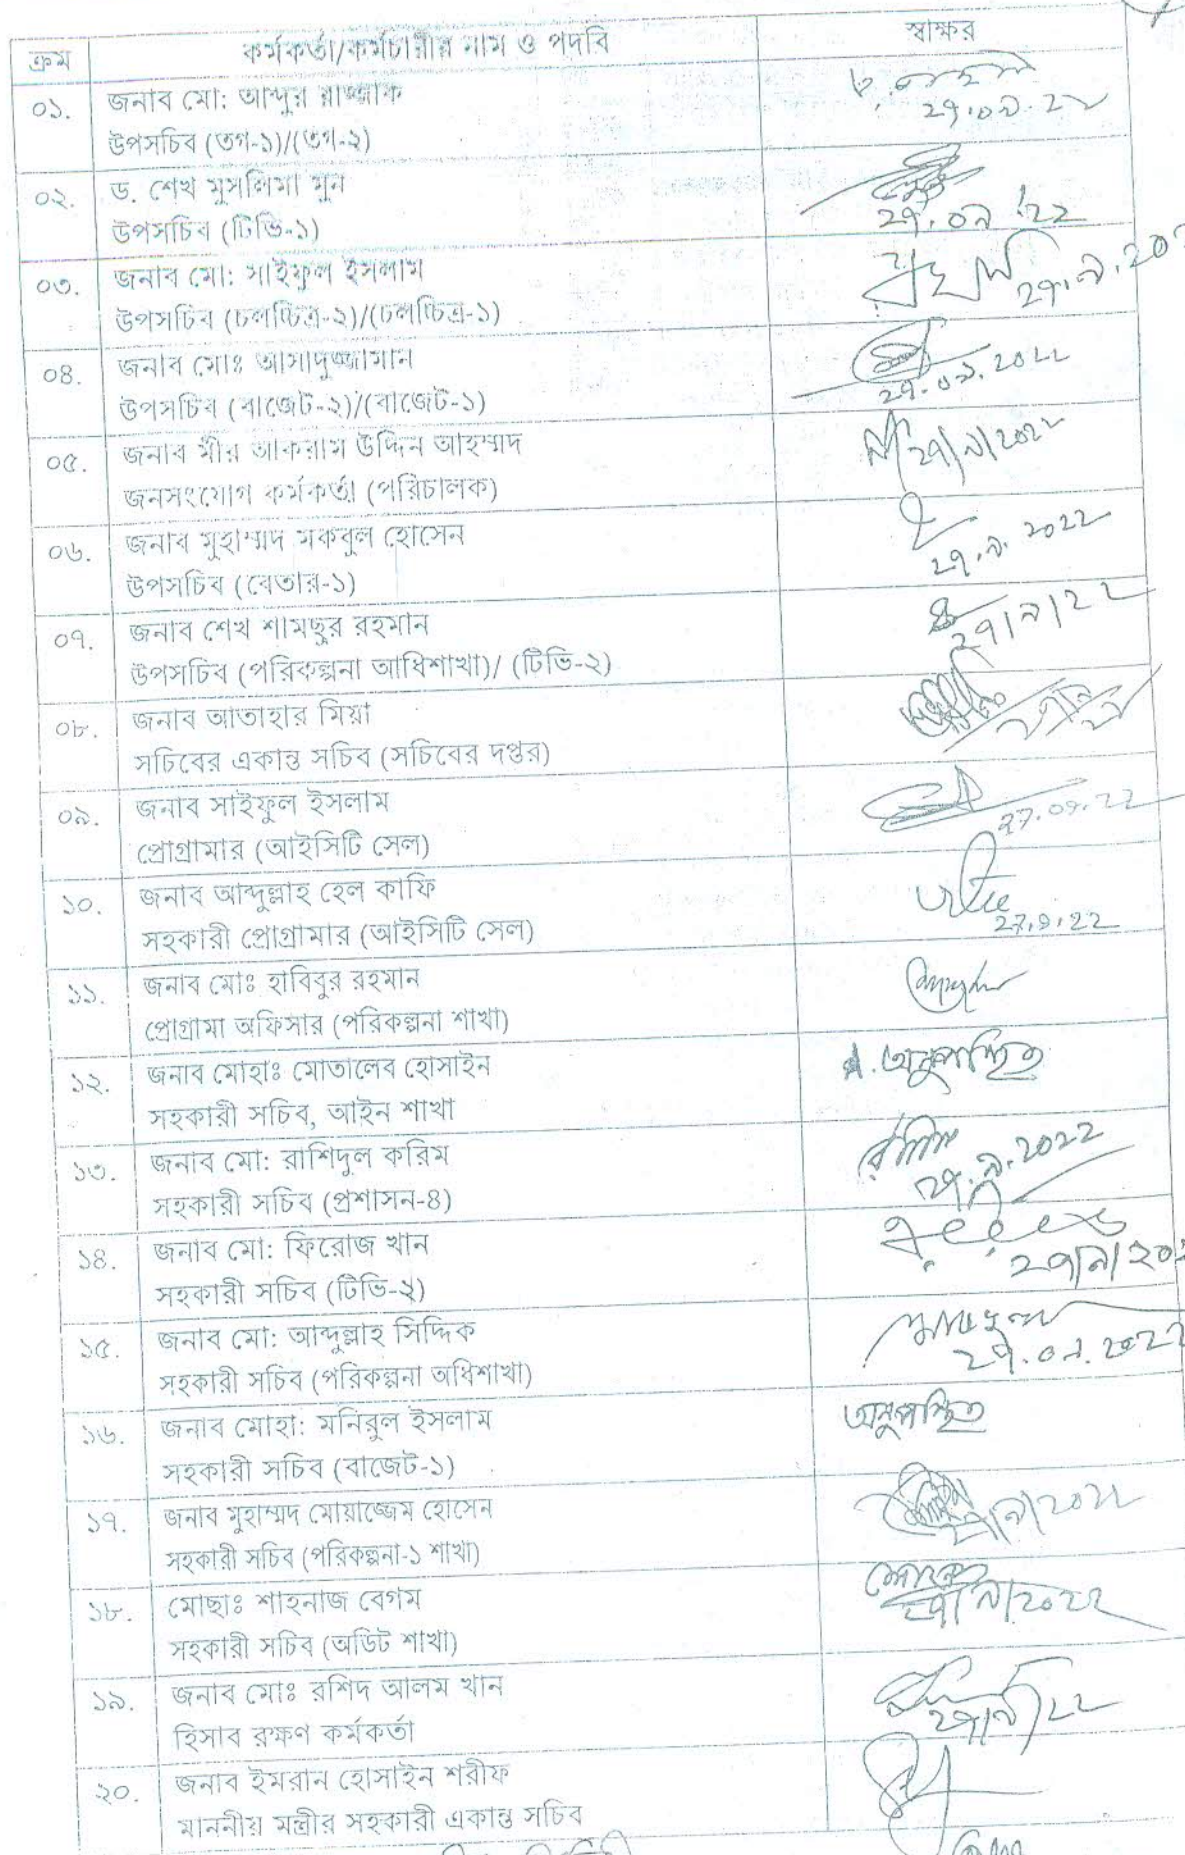 ক্রম কর্মকর্তা/কর্মচারীর নাম ও পদবি স্বাক্ষর
০১. জনাব মো: আব্দুর রাজ্জাক
উপসচিব (তগ-১)/(তগ-২)
২৭.০৯.২২
০২. ড. শেখ মুসলিমা মুন
উপসচিব (টিভি-১)
২৭.০৯.'২২
০৩. জনাব মো: সাইফুল ইসলাম
উপসচিব (চলচ্চিত্র-২)/(চলচ্চিত্র-১)
০৪. জনাব মোঃ আসাদুজ্জামান
উপসচিব (বাজেট-২)/(বাজেট-১)
২৭.০৯.২০২২
০৫. জনাব মীর আকরাম উদ্দিন আহম্মদ
জনসংযোগ কর্মকর্তা (পরিচালক)
২৭/৯/২০২২
০৬. জনাব মুহাম্মদ মকবুল হোসেন
উপসচিব (বেতার-১)
২৭.৯.২০২২
০৭. জনাব শেখ শামছুর রহমান
উপসচিব (পরিকল্পনা আধিশাখা)/ (টিভি-২)
২৭/৯/২২
০৮. জনাব আতাহার মিয়া
সচিবের একান্ত সচিব (সচিবের দপ্তর)
০৯. জনাব সাইফুল ইসলাম
প্রোগ্রামার (আইসিটি সেল)
27.09.22
১০. জনাব আব্দুল্লাহ হেল কাফি
সহকারী প্রোগ্রামার (আইসিটি সেল)
27.9.22
১১. জনাব মোঃ হাবিবুর রহমান
প্রোগ্রামা অফিসার (পরিকল্পনা শাখা)
১২. জনাব মোহাঃ মোতালেব হোসাইন
সহকারী সচিব, আইন শাখা
অনুপস্থিত
১৩. জনাব মো: রাশিদুল করিম
সহকারী সচিব (প্রশাসন-৪)
২৭.৯.২০২২
১৪. জনাব মো: ফিরোজ খান
সহকারী সচিব (টিভি-২)
১৫. জনাব মো: আব্দুল্লাহ সিদ্দিক
সহকারী সচিব (পরিকল্পনা অধিশাখা)
২৭.০৯.২০২২
১৬. জনাব মোহা: মনিরুল ইসলাম
সহকারী সচিব (বাজেট-১)
অনুপস্থিত
১৭. জনাব মুহাম্মদ মোয়াজ্জেম হোসেন
সহকারী সচিব (পরিকল্পনা-১ শাখা)
২৭/৯/২০২২
১৮. মোছাঃ শাহনাজ বেগম
সহকারী সচিব (অডিট শাখা)
২৭/৯/২০২২
১৯. জনাব মোঃ রশিদ আলম খান
হিসাব রক্ষণ কর্মকর্তা
২৭/৯/২২
২০. জনাব ইমরান হোসাইন শরীফ
মাননীয় মন্ত্রীর সহকারী একান্ত সচিব